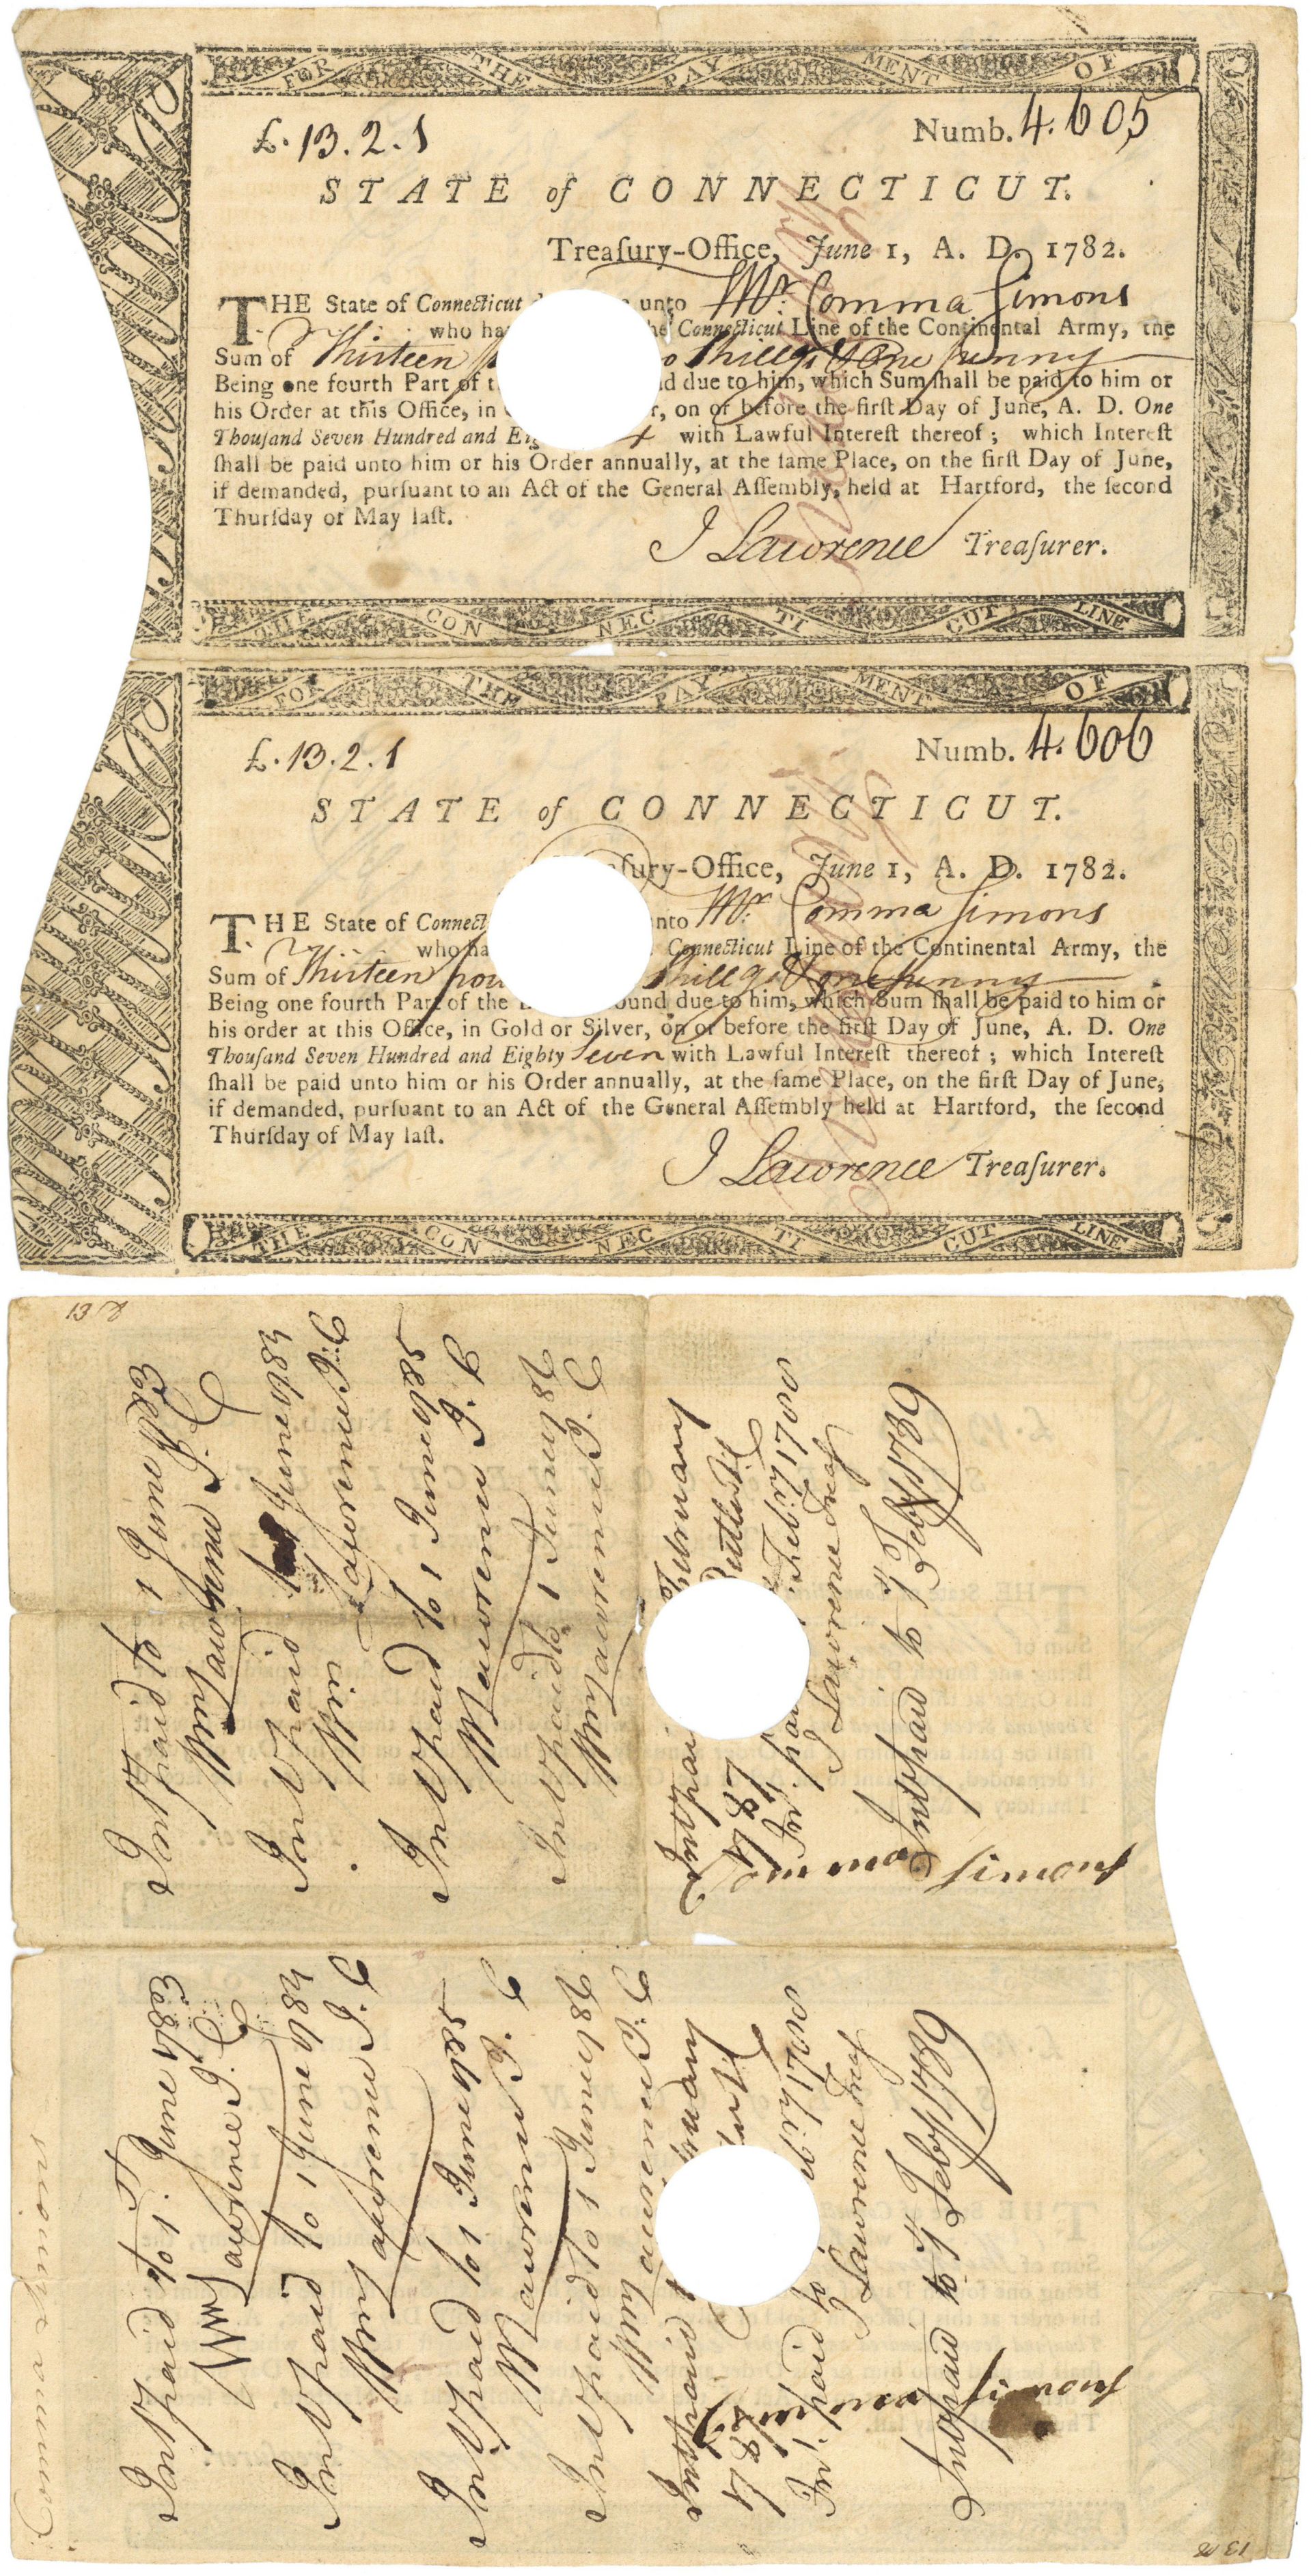 FOR THE PAY MENT OF
£.13.2.1 Numb. 4.605
STATE of CONNECTICUT.
Treaſury-Office, June 1, A. D. 1782.
THE State of Connecticut unto Mr. Comma Simons
who ha he Connecticut Line of the Continental Army, the
Sum of Thirteen o Shillgs & One penny
Being one fourth Part of t nd due to him, which Sum ſhall be paid to him or
his Order at this Office, in r, on or before the firſt Day of June, A. D. One
Thouſand Seven Hundred and Eig with Lawful Intereſt thereof ; which Intereſt
ſhall be paid unto him or his Order annually, at the ſame Place, on the firſt Day of June,
if demanded, purſuant to an Act of the General Aſſembly, held at Hartford, the ſecond
Thurſday of May laſt.
J Lawrence Treaſurer.
THE CON NEC TI CUT LINE
FOR THE PAY MENT OF
£.13.2.1 Numb. 4.606
STATE of CONNECTICUT.
aſury-Office, June 1, A. D. 1782.
THE State of Connect nto Mr. Comma Simons
who ha Connecticut Line of the Continental Army, the
Sum of Thirteen pou Shillgs & one penny
Being one fourth Part of the ound due to him, which Sum ſhall be paid to him or
his order at this Office, in Gold or Silver, on or before the firſt Day of June, A. D. One
Thouſand Seven Hundred and Eighty Seven with Lawful Intereſt thereof ; which Intereſt
ſhall be paid unto him or his Order annually, at the ſame Place, on the firſt Day of June,
if demanded, purſuant to an Act of the General Aſſembly held at Hartford, the ſecond
Thurſday of May laſt.
J Lawrence Treaſurer.
THE CON NEC TI CUT LINE
Int paid to 1 June 1783
Wm Lawrence T. C
Int paid 1 June 1784
Wm Lawrence T. C
Int paid to 1 June 1785
W Lawrence T. C
Int paid to 1 June 1786
Wm Lawrence T. C
Int pai February
1787
Int. pai Febry 1788
J Lawrence Treaſ
Int paid to 1st Feby 1789
Comma Simons
Int paid to 1 June 1783
Wm Lawrence T. C
Int paid to 1 June 1784
Wm Lawrence T. C
Int paid to 1 June 1785
W Lawrence T. C
Int paid to 1 June 1786
Wm Lawrence T. C
Int paid
1787
Int. paid to bry 1788
J Lawrence Treaſ
Int paid to 1st Feby 1789
Comma Simons
Comma Simons